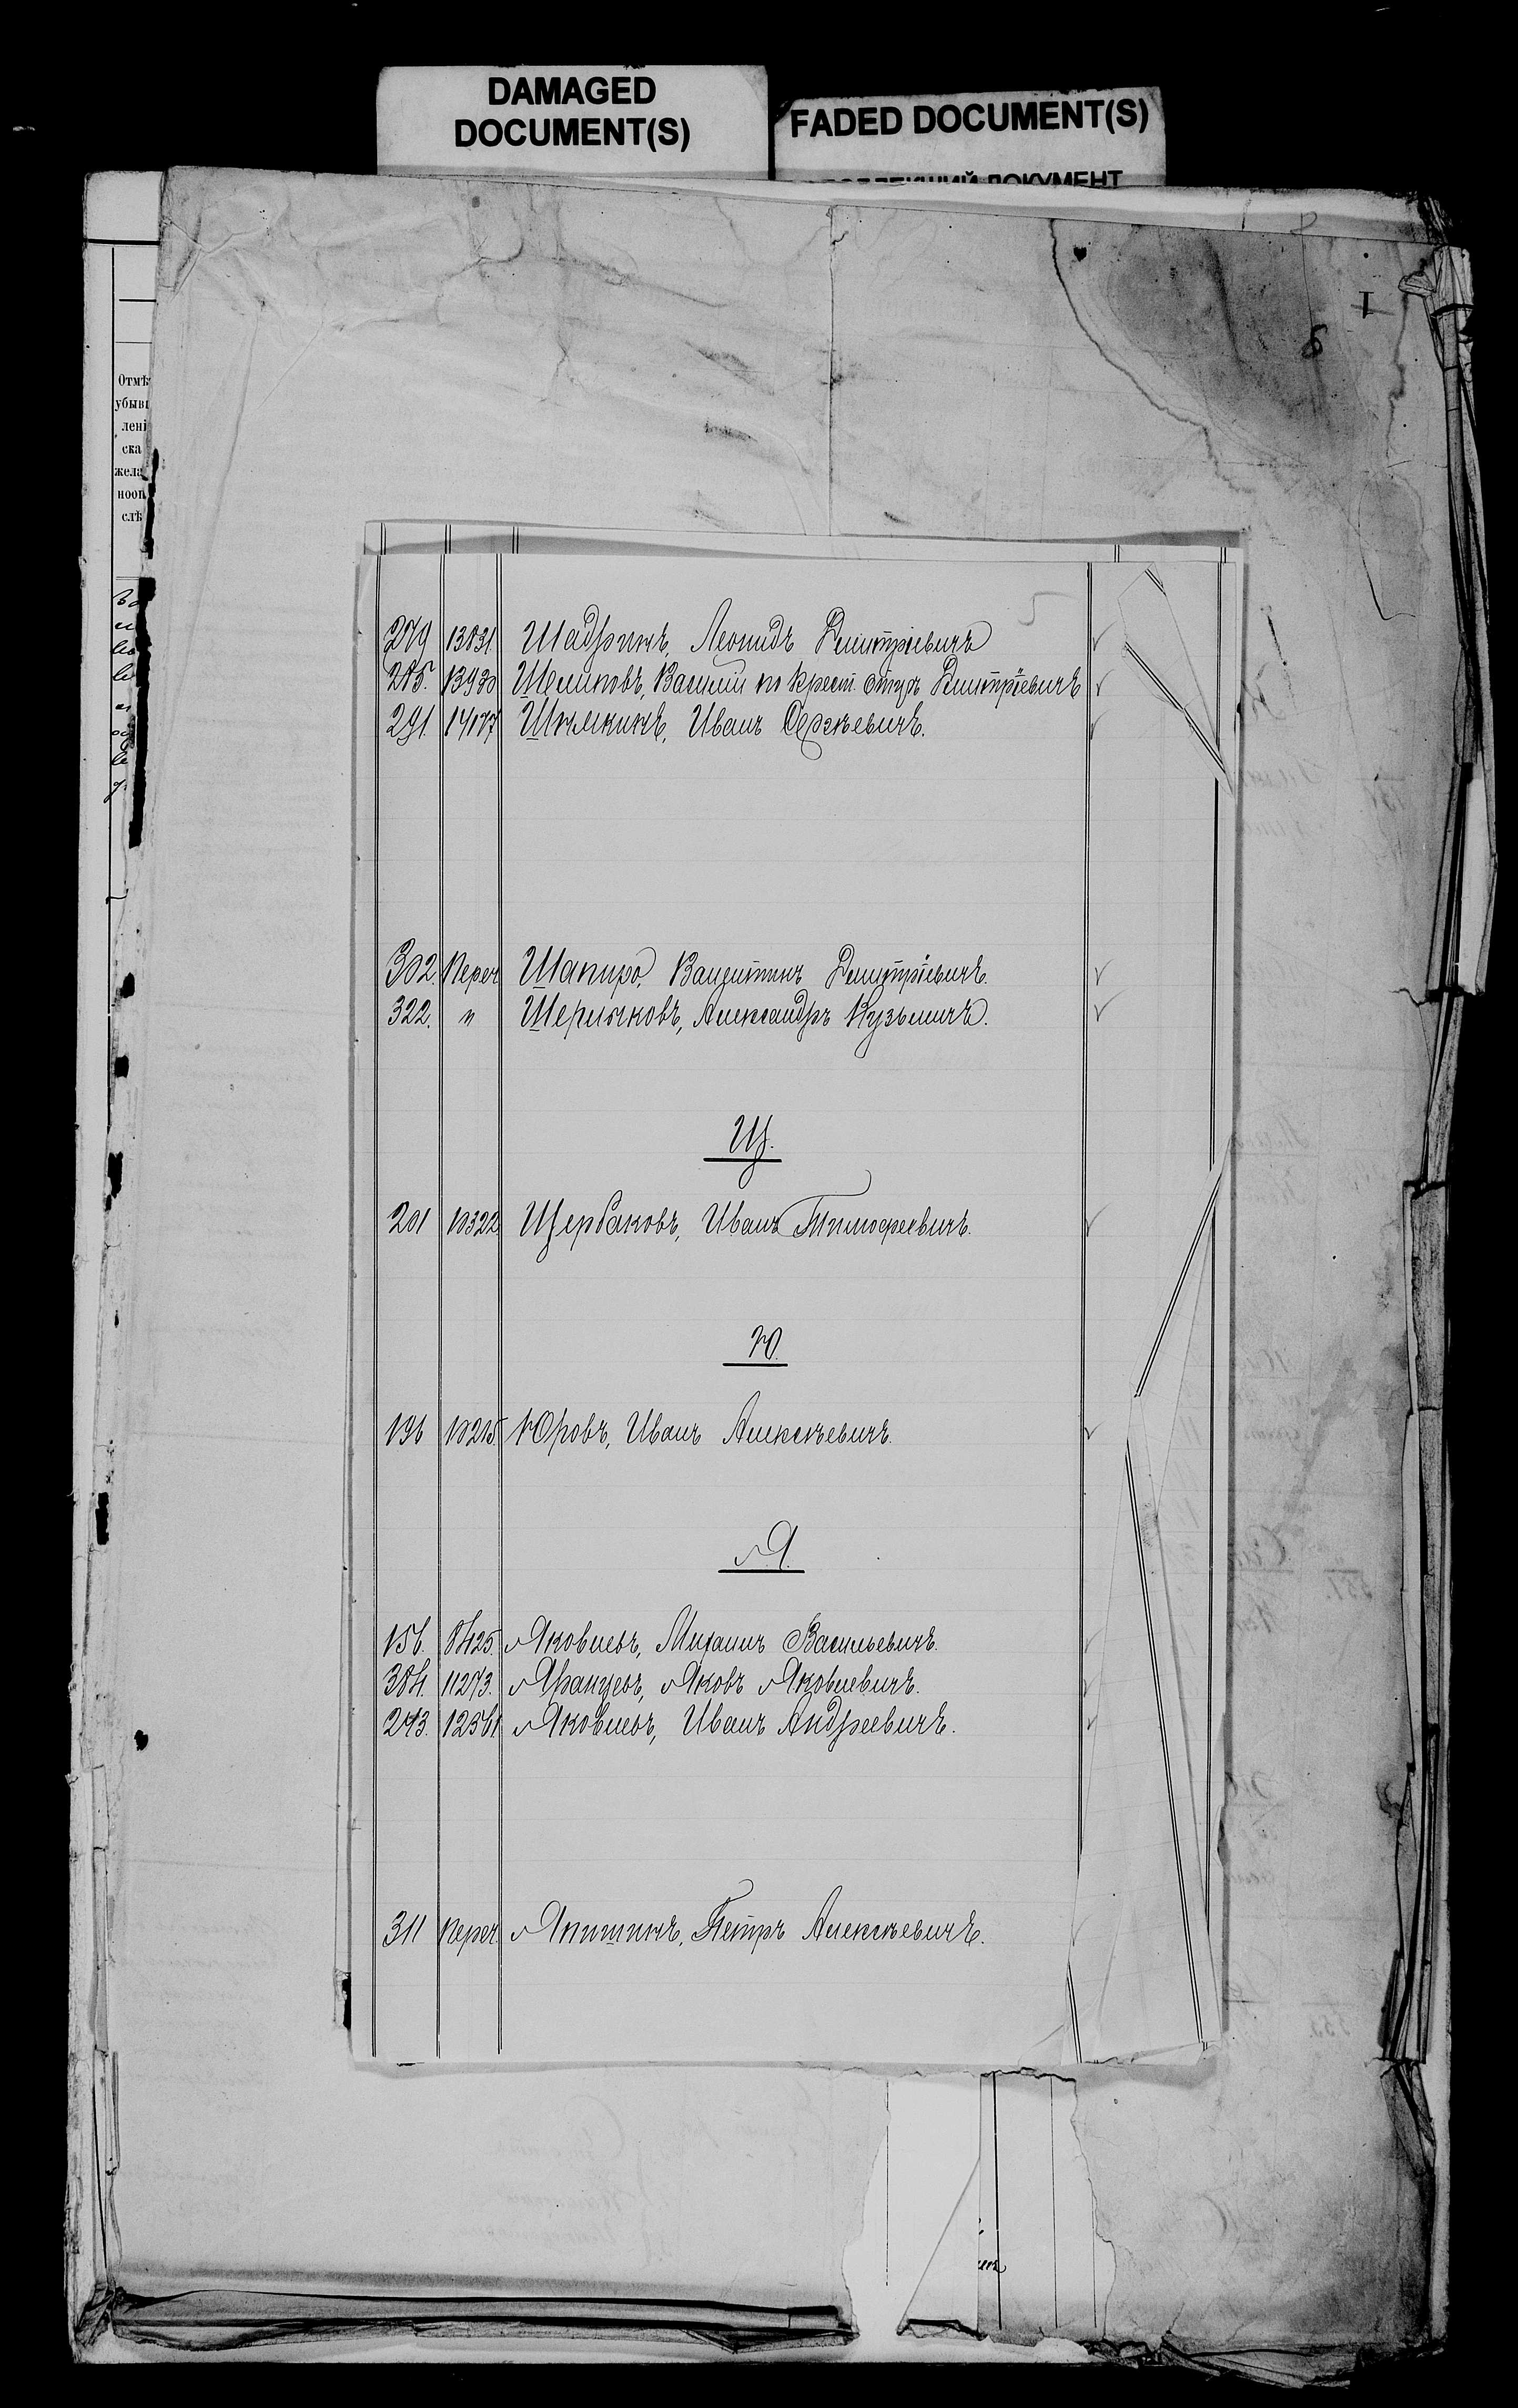 DAMAGED
DOCUMENT(S)
FADED DOCUMENT(S)
ДОКУМЕНТ
Отмѣ
убывш
лені
ска
жела
нооп
слѣ
279 13831. Шадринъ, Леонидъ Дмитріевичъ
285. 13930 Шелиховъ, Василій по крест. отцу Дмитріевичъ
291. 14177 Шнымкинъ, Иванъ Сергѣевичъ.
302. Переч Шапиро, Валентинъ Дмитріевичъ.
322. " Шерлыковъ, Александръ Кузьмичъ.
Щ.
201 10322 Щербаковъ, Иванъ Тимофеевичъ.
Ю.
196 10215. Юровъ, Иванъ Алексѣевичъ.
Я.
156. 8425. Яковлевъ, Михаилъ Васильевичъ.
384. 11273. Яранцевъ, Яковъ Яковлевичъ.
273. 12561 Яковлевъ, Иванъ Андреевичъ.
311 Переч. Япишинъ, Петръ Алексѣевичъ.